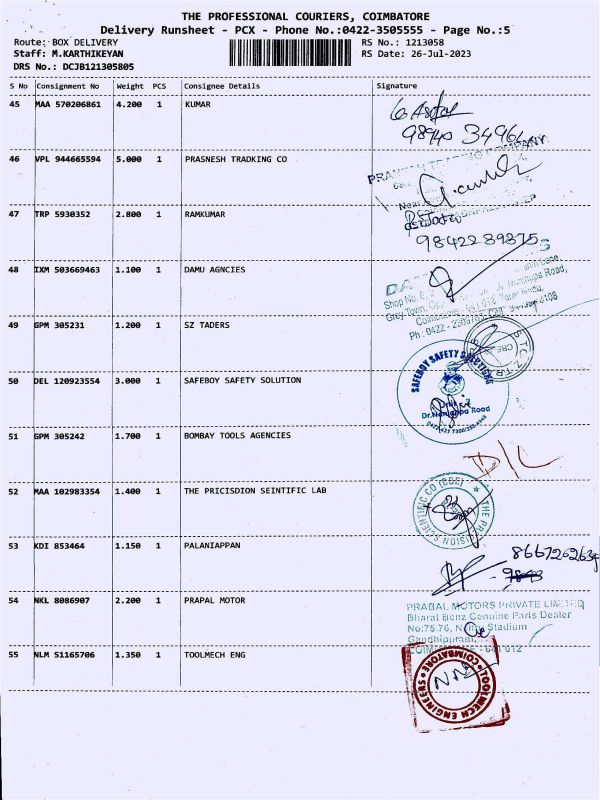 THE PROFESSIONAL COURIERS, COIMBATORE
Delivery Runsheet - PCX - Phone No.:0422-3505555 - Page No.:5
Route: BOX DELIVERY RS No.: 1213058
Staff: M.KARTHIKEYAN RS Date: 26-Jul-2023
DRS No.: DCJB121305805
S No Consignment No Weight PCS Consignee Details Signature
45 MAA 570206861 4.200 1 KUMAR
46 VPL 944665594 5.000 1 PRASNESH TRADKING CO
47 TRP 5930352 2.800 1 RAMKUMAR
9842289875
48 IXM 503669463 1.100 1 DAMU AGNCIES
Shop No.
Grey Town,
Ph : 0422 -
49 GPM 305231 1.200 1 SZ TADERS
50 DEL 120923554 3.000 1 SAFEBOY SAFETY SOLUTION
SAFEBOY SAFETY SOLUTIONS
Dr.Nanjappa Road
51 GPM 305242 1.700 1 BOMBAY TOOLS AGENCIES
D/L
52 MAA 102983354 1.400 1 THE PRICISDION SEINTIFIC LAB
THE PRECISION SCIENTIFIC CO (CBE)
53 KDI 853464 1.150 1 PALANIAPPAN
8667202639
54 NKL 8086907 2.200 1 PRAPAL MOTOR
PRABAL MOTORS PRIVATE LIMITED
Bharat Benz Genuine Parts Dealer
No:75-76, Nehru Stadium
Gandhipuram,
COIMBATORE - 641 012
55 NLM 51165706 1.350 1 TOOLMECH ENG
TOOLMECH ENGINEERS COIMBATORE